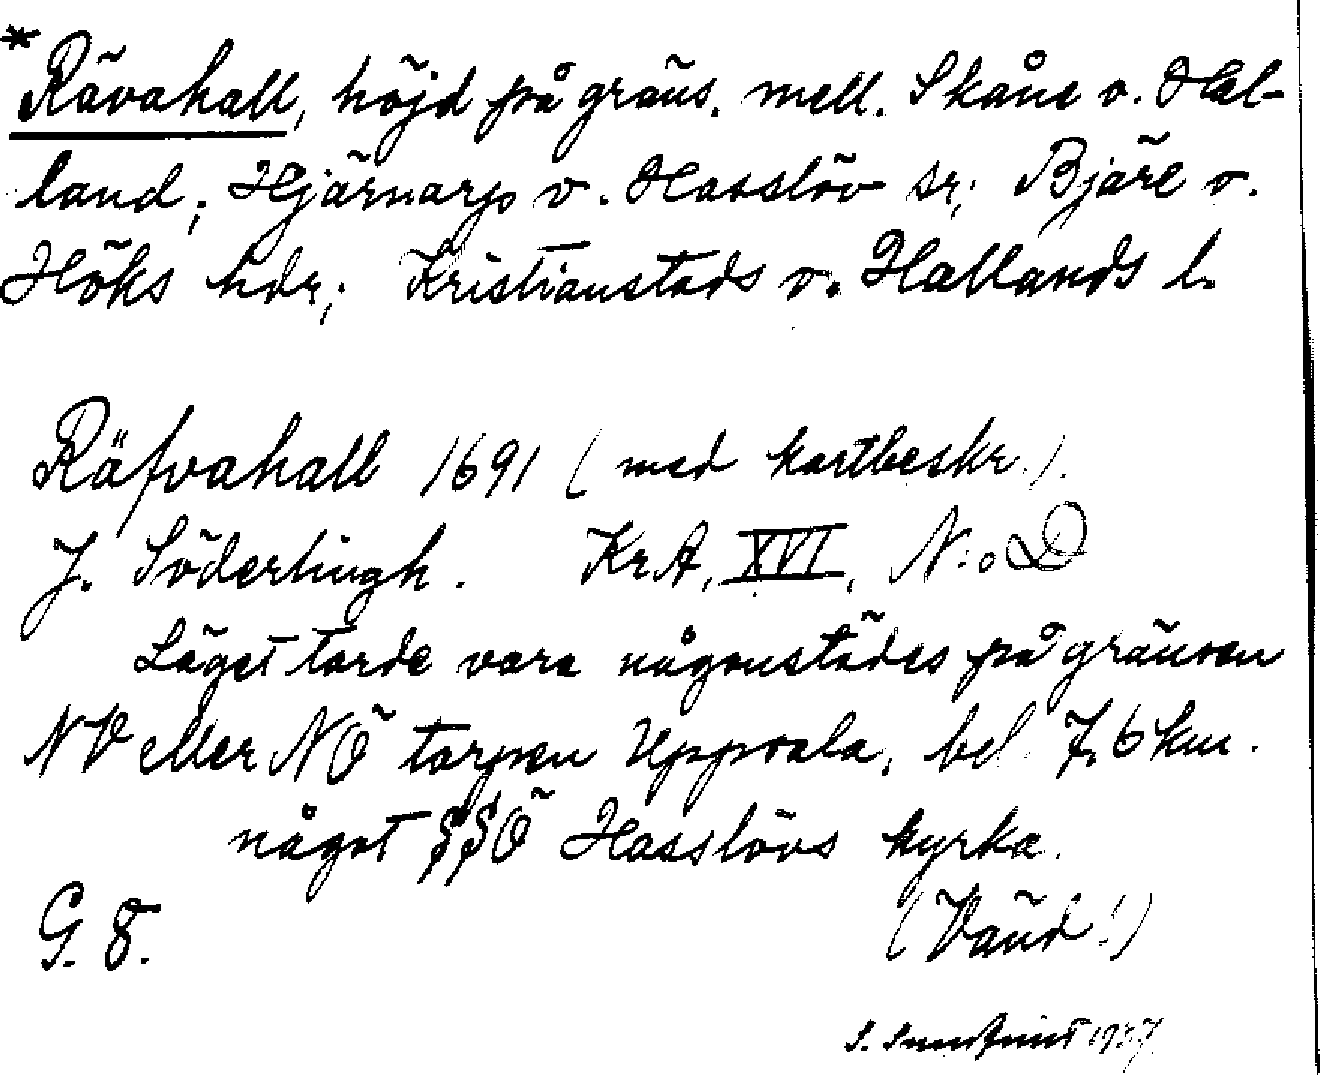 * Rävahall, höjd på gräns. mell. Skåne o. Hal-
land; Hjärnarps o. Hasslöv sr; Bjäre o.
Höks hdr; Kristianstads o. Hallands l.
Räfvahall 1691 (med kartbeskr.).
J. Söderlingh. KrA, XVI, N:o D
Läget torde vara någonstädes på gränsen
NV eller NÖ torpen Uppsala, bel. 7,6 km.
något SSÖ Hasslövs kyrka.
G. 8. (Vänd!)
S. 1937